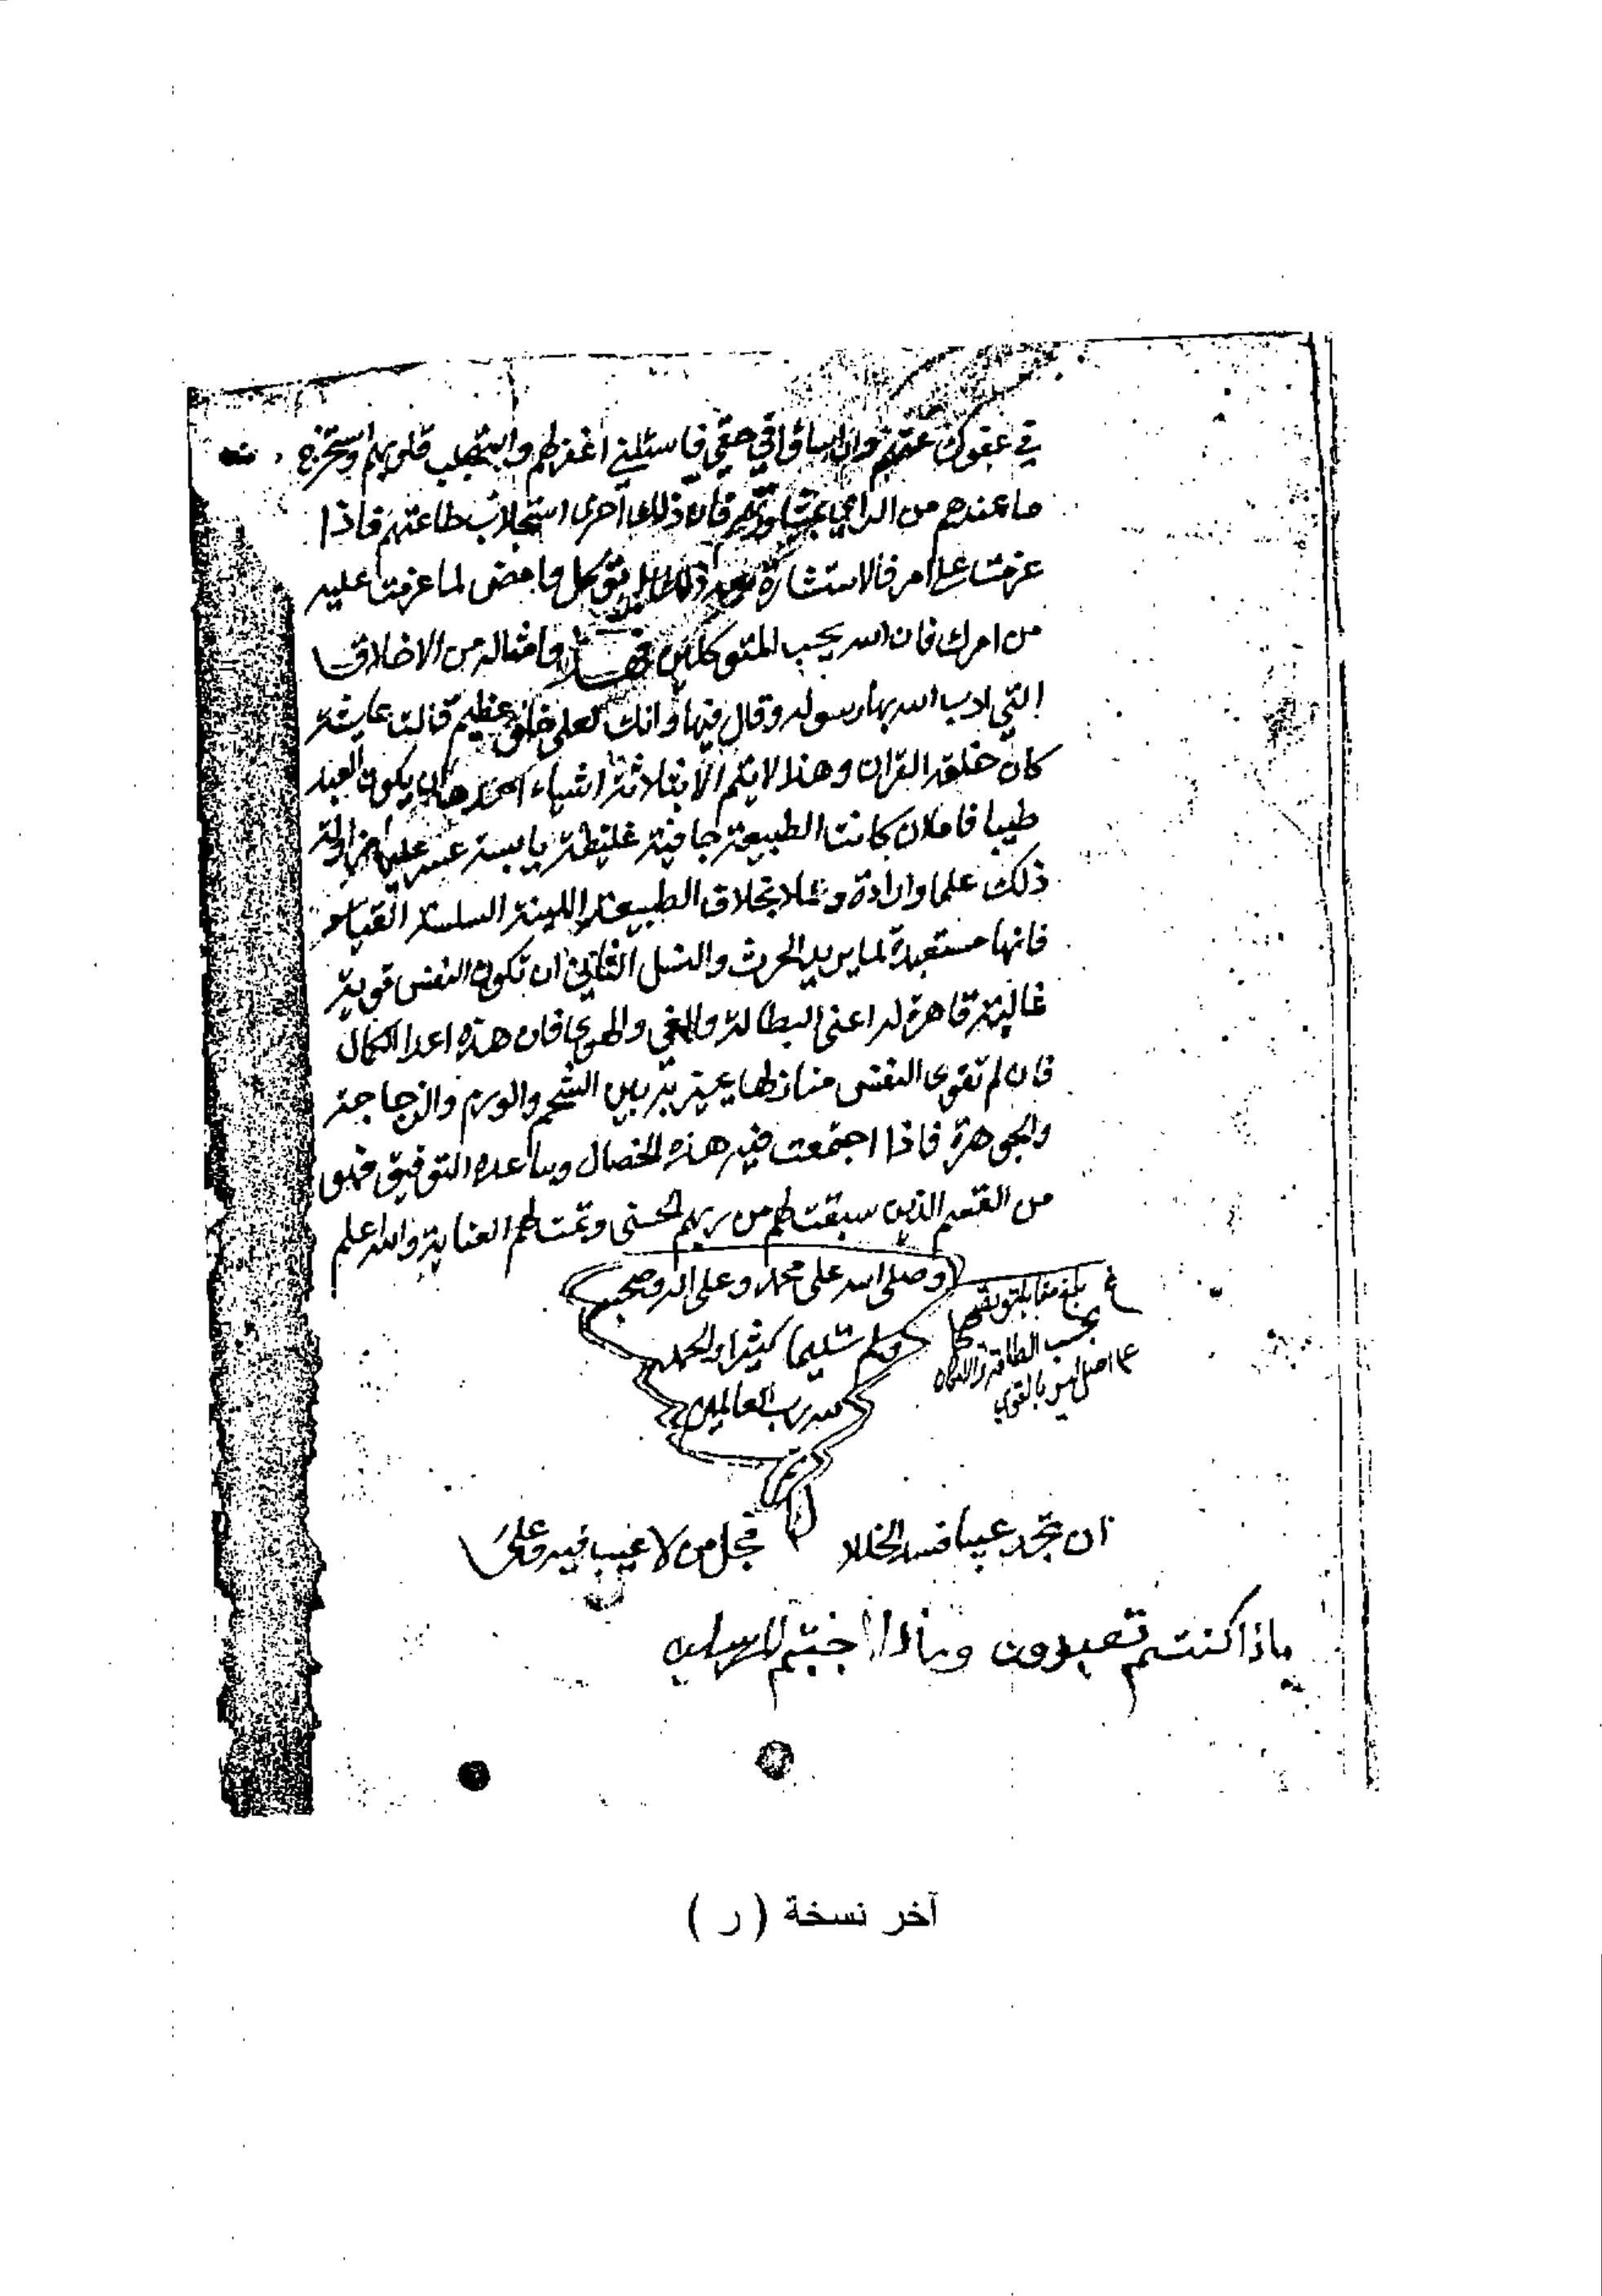 في عفوك عنهم وان اساؤا في حقي فاسئلني اغفر لهم واستجلب قلوبهم واستخرج
ما عندهم من الراي بمشاورتهم فان ذلك احرى استجلاب طاعتهم فاذا
عزمت على امر فلا استشارة بعد ذلك بل توكل وامض لما عزمت عليه
من امرك فان الله يحب المتوكلين فهذا وامثاله من الاخلاق
التي ادب الله بها رسوله وقال فيها وانك لعلى خلق عظيم قالت عايشة
كان خلقه القران وهذا لا يتم الا بثلاثة اشياء احدها ان يكون العبد
طيبا فاما ان كانت الطبيعة جافية غليظة يابسة عسر عليها مزاولة
ذلك علما وارادة وعملا بخلاف الطبيعة اللينة السلسة القياد
فانها مستعبدة لما يريد الحرث والنسل الثاني ان تكون النفس قوية
غالبة قاهرة لدواعي البطالة والغي والهوى فان هذه اعدا الكمال
فان لم تقوى النفس يميز به بين الشحم والورم والزجاجة
والجوهرة فاذا اجتمعت فيه هذه الخصال وساعده التوفيق فهو
من القسم الذين سبقت لهم من ربهم الحسنى وتمت لهم العناية والله اعلم
وصلى الله على محمد وعلى اله وصحبه
وسلم تسليما كثيرا والحمد
لله رب العالمين
تم
بلغ مقابلة وتصحيحا
بحسب الطاقة والامكان
على اصل ليس بالقوي
ان تجد عيبا فسد الخللا فجل من لا عيب فيه وعلا
ماذا كنتم تعبدون وماذا اجبتم المرسلين
آخر نسخة ( ر )